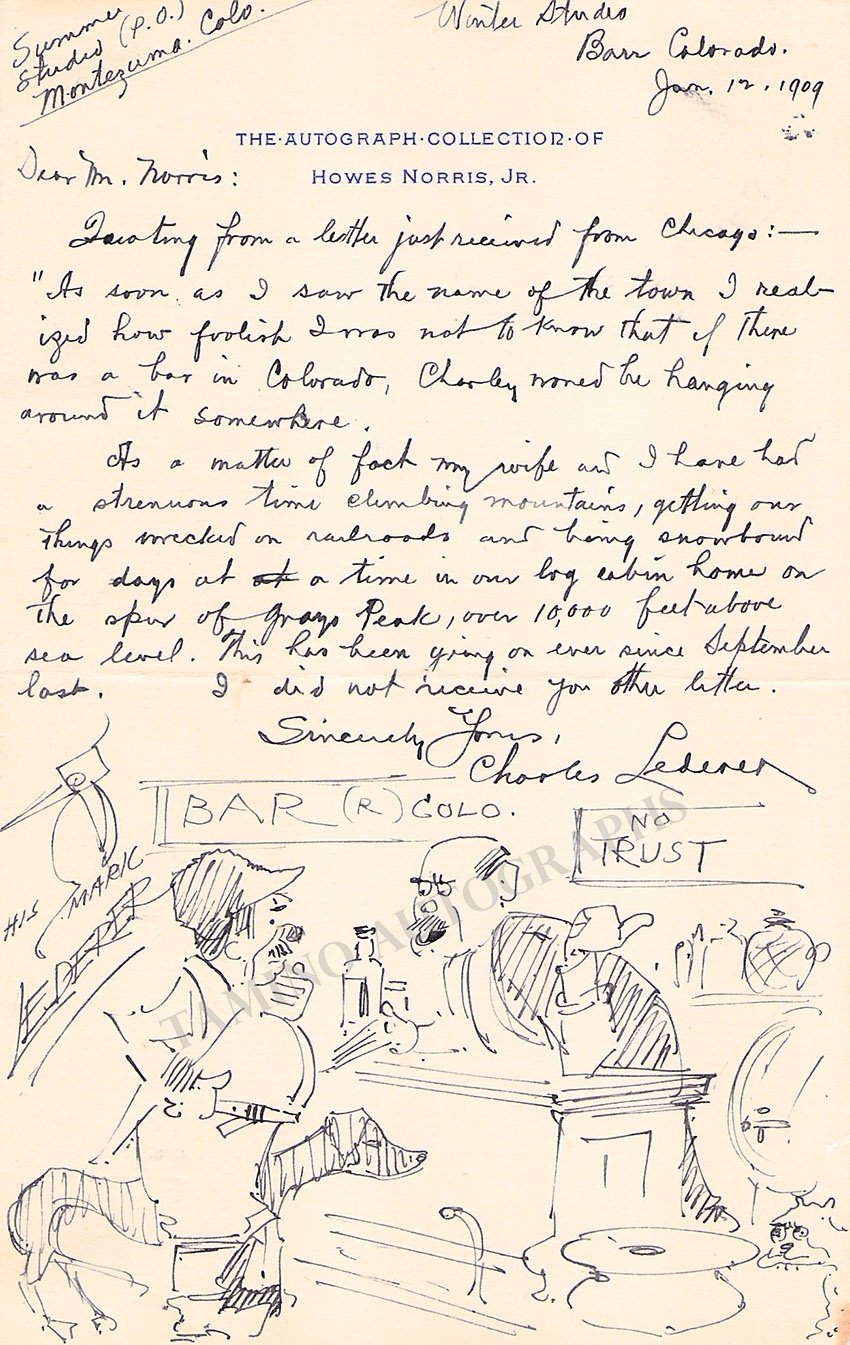 Summer
Studio (P.O.)
Montezuma. Colo.
Winter Studio
Barr Colorado.
Jan. 12. 1909
THE·AUTOGRAPH·COLLECTION·OF
HOWES NORRIS, JR.
Dear Mr. Norris:
Quoting from a letter just received from Chicago:—
"As soon as I saw the name of the town I real-
ized how foolish I was not to know that if there
was a bar in Colorado, Charley would be hanging
around it somewhere.
As a matter of fact my wife and I have had
a strenuous time climbing mountains, getting our
things wrecked on railroads and being snowbound
for days at at a time in our log cabin home on
the spur of Grays Peak, over 10,000 feet above
sea level. This has been going on ever since September
last. I did not receive you other letter.
Sincerely Yours,
Charles Lederer
BAR (R) COLO.
NO
TRUST
HIS MARK
LEDERER
TAMINO AUTOGRAPHS